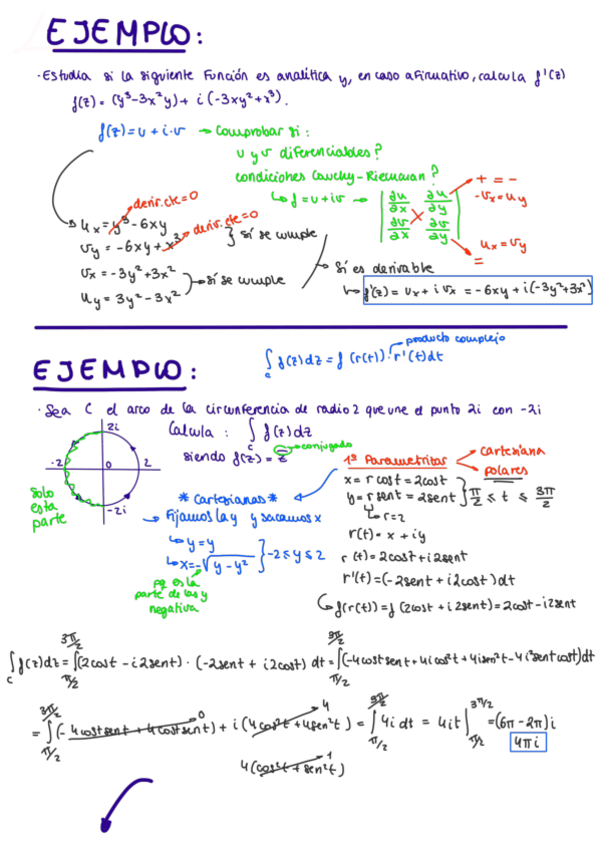 EJEMPLO:
· Estudia si la siguiente función es analítica y, en caso afirmativo, calcula f'(z)
f(z) = (y³-3x²y) + i(-3xy²+x³).
f(z) = u + i·v → Comprobar si:
u y v diferenciables?
condiciones Cauchy-Riemann?
↳ f = u + iv → | ∂u/∂x ∂u/∂y |
| ∂v/∂x ∂v/∂y |
+ = -
-vx = uy
ux = vy
=
deriv. cte = 0
ux = y³ - 6xy
deriv. cte = 0
vy = -6xy + x³ } sí se cumple
vx = -3y² + 3x²
uy = 3y² - 3x² } → sí se cumple
→ sí es derivable
↳ f'(z) = ux + i vx = -6xy + i(-3y²+3x²)
EJEMPLO:
∫c f(z)dz = f(r(t))·r'(t)dt
producto complejo
· Sea C el arco de la circunferencia de radio 2 que une el punto 2i con -2i
Calcula: ∫c f(z)dz
siendo f(z) = z̄ → conjugado
2i
-2 0 2
-2i
solo
esta
parte
1º Parametrizar → cartesiana
→ polares
x = r cost = 2cost
y = r sent = 2sent } π/2 ≤ t ≤ 3π/2
↳ r=2
r(t) = x + iy
r(t) = 2cost + i2sent
r'(t) = (-2sent + i2cost)dt
↳ f(r(t)) = f(2cost + i2sent) = 2cost - i2sent
* Cartesianas *
→ Fijamos la y y sacamos x
↳ y = y
↳ x = -√(y - y²) } -2 ≤ y ≤ 2
pq es la
parte de las y
negativa
∫c f(z)dz = ∫π/2 3π/2 (2cost - i2sent)·(-2sent + i2cost) dt = ∫π/2 3π/2 (-4costsent + 4icos²t + 4isen²t - 4i²sentcost)dt
= ∫π/2 3π/2 (-4costsent + 4costsent) 0 + i(4cos²t + 4sen²t) 4 = ∫π/2 3π/2 4i dt = 4it | π/2 3π/2 = (6π - 2π)i
4πi
4(cos²t + sen²t) 1